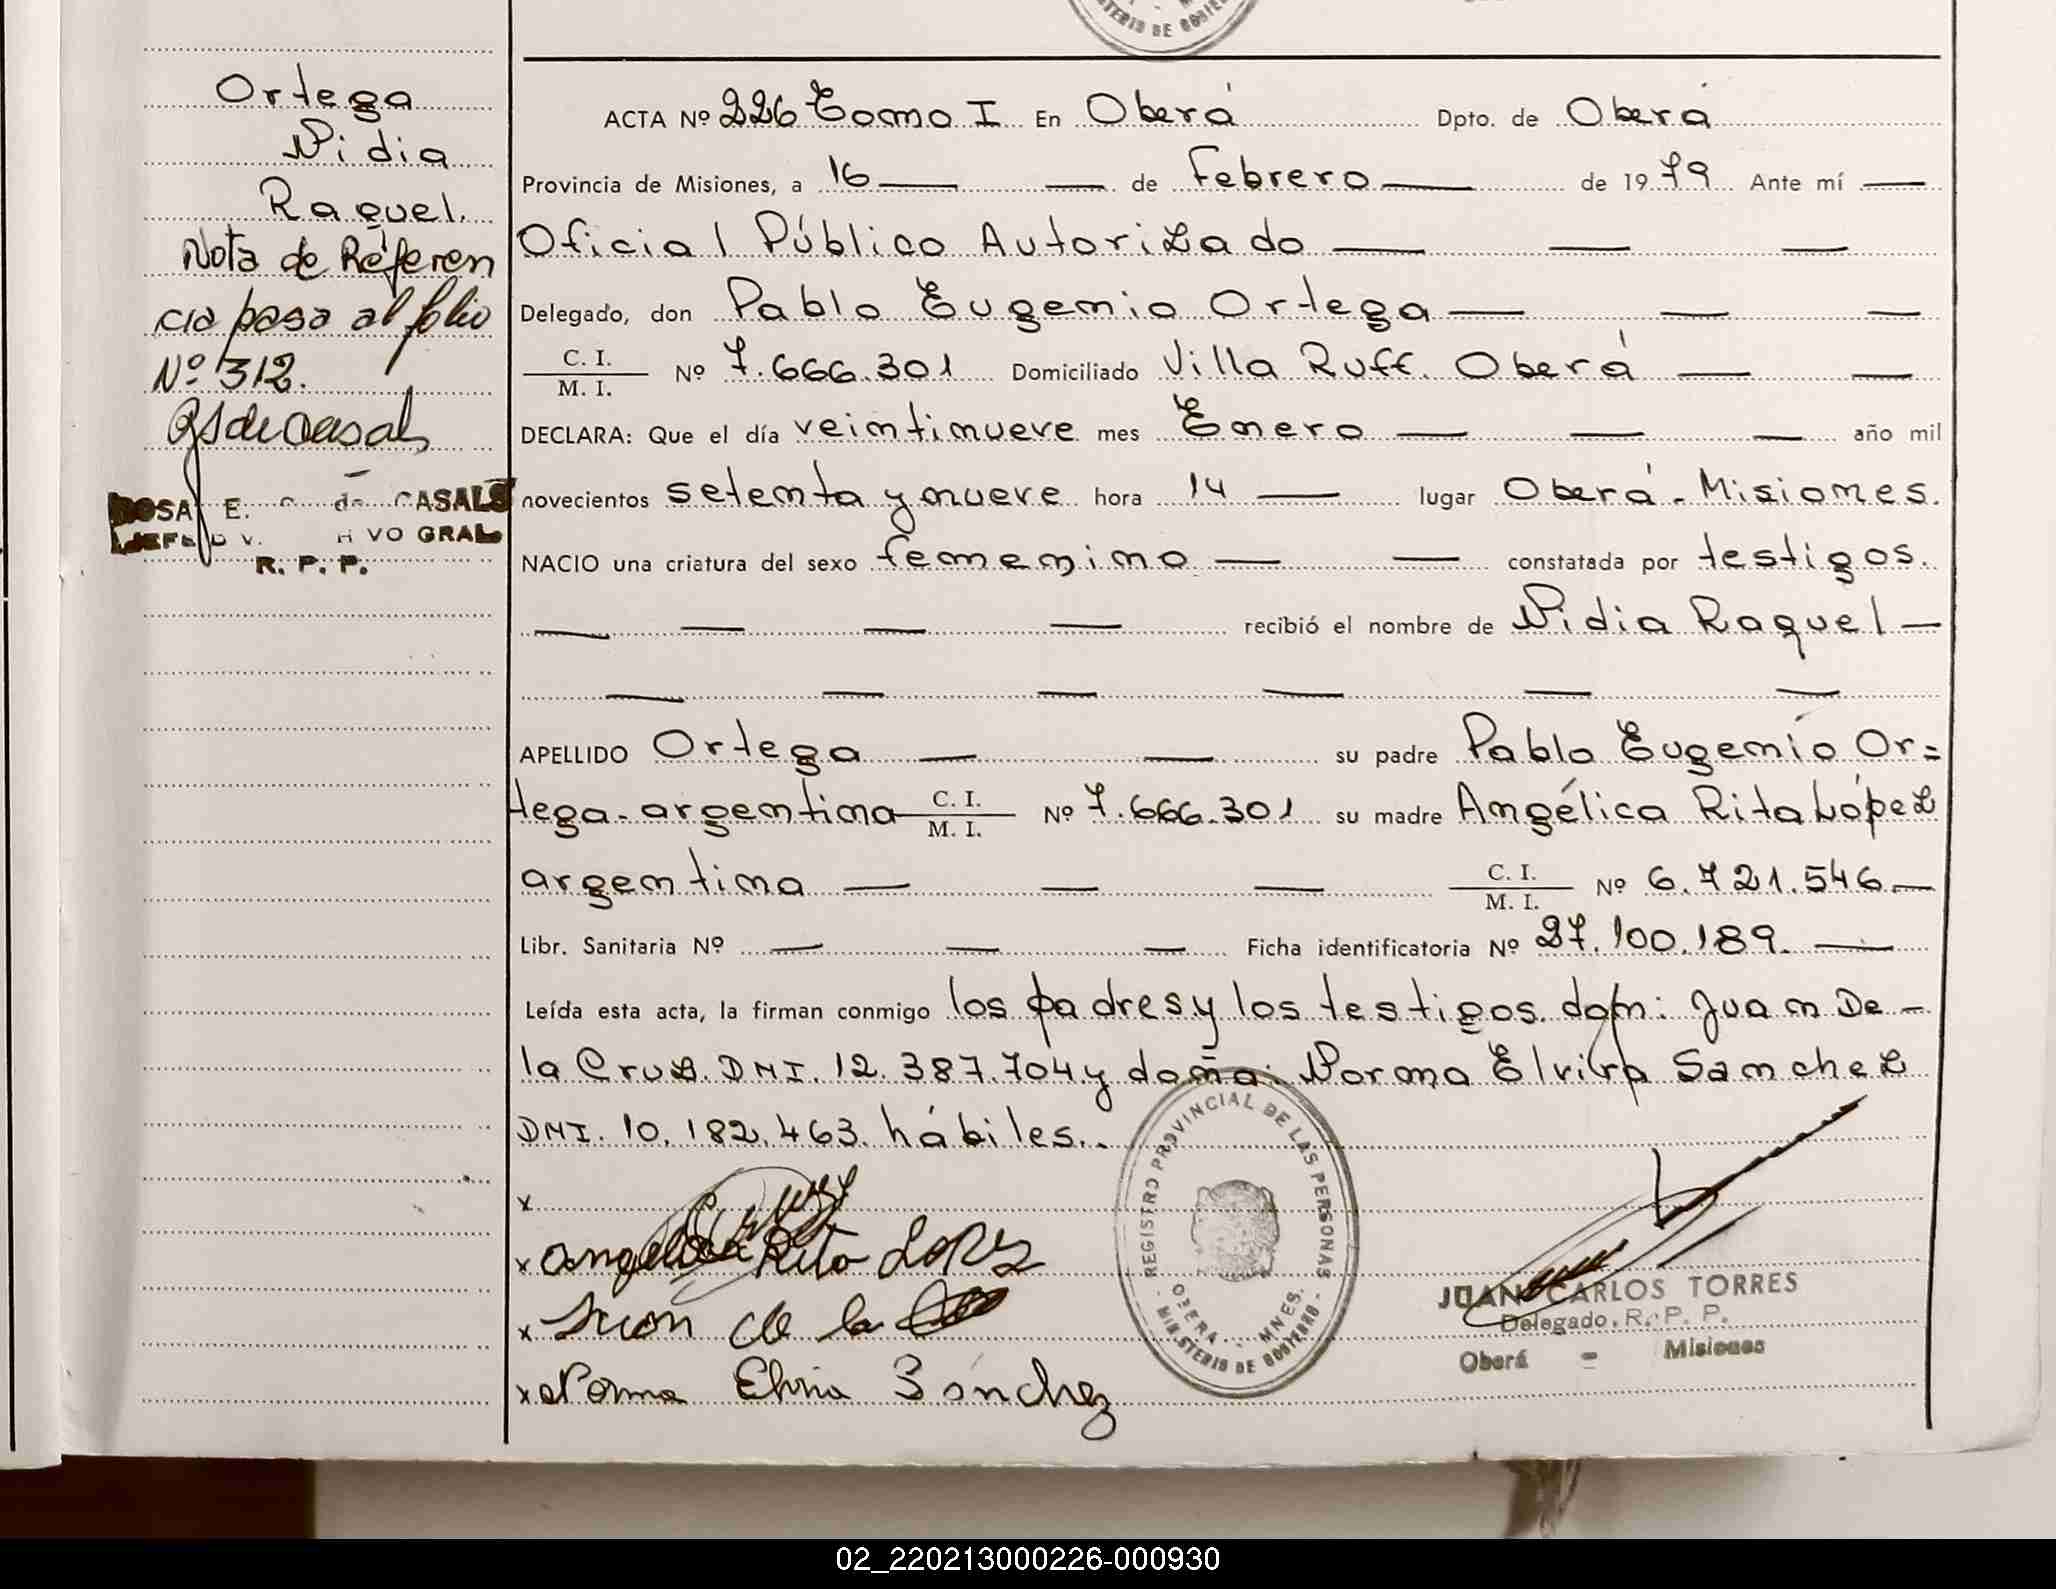 MINISTERIO DE GOBIERNO
Ortega
Nidia
Raquel.
Nota de Referen
cia pasa al folio
Nº 312.
ROSA E. de CASALS
VO GRAL.
R. P. P.
ACTA Nº 226 Tomo I En Oberá Dpto. de Oberá
Provincia de Misiones, a 16 — — de Febrero — de 1979 Ante mí —
Oficial Público Autorizado — — —
Delegado, don Pablo Eugenio Ortega — — —
C. I.
M. I. Nº 7.666.301 Domiciliado Villa Ruff. Oberá — —
DECLARA: Que el día veintinueve mes Enero — — — año mil
novecientos setenta y nueve hora 14 — lugar Oberá - Misiones.
NACIO una criatura del sexo femenino — — constatada por testigos.
— — — — recibió el nombre de Nidia Raquel —
— — — — — —
APELLIDO Ortega — — su padre Pablo Eugenio Or=
tega - argentino C. I.
M. I. Nº 7.666.301 su madre Angélica Rita López
argentina — — — C. I.
M. I. Nº 6.721.546 —
Libr. Sanitaria Nº — — — Ficha identificatoria Nº 27.100.189. —
Leída esta acta, la firman conmigo los padres y los testigos. don: Juan De -
la Cruz. DNI. 12.387.704 y doña: Norma Elvira Sanchez
DNI. 10.182.463. hábiles..
x
x Angelica Rita Lopez
x Juan de la
x Norma Elvira Sánchez
REGISTRO PROVINCIAL DE LAS PERSONAS
OBERA - MNES.
MINISTERIO DE GOBIERNO
JUAN CARLOS TORRES
Delegado. R. P. P.
Oberá - Misiones
02_220213000226-000930